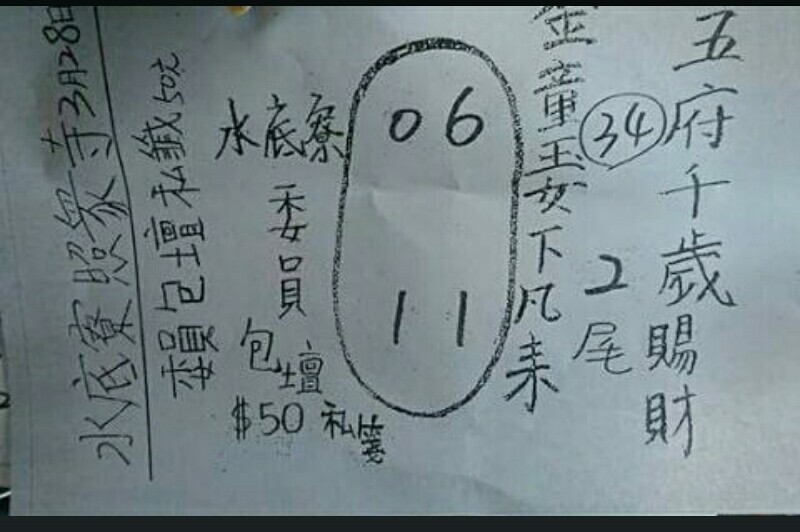 五府千歲賜財
34
2尾
金童玉女下凡来
06
11
水底寮
委員
包壇
$50 私箋
委員包壇私籤50元
水底寮照眾寺3月28日